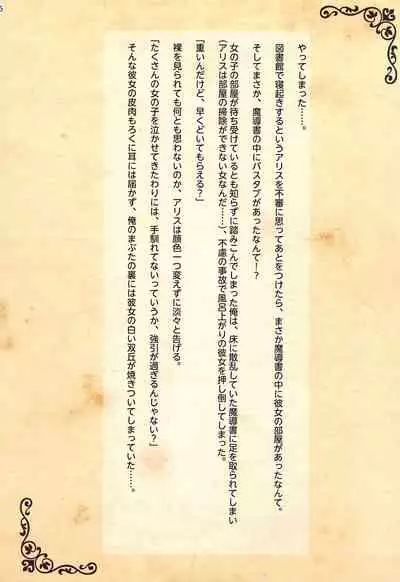 5
やってしまった……。
図書館で寝起きするというアリスを不審に思ってあとをつけたら、まさか魔導書の中に彼女の部屋があったなんて。
そしてまさか、魔導書の中にバスタブがあったなんてー？
女の子の部屋が待ち受けているとも知らずに踏みこんでしまった俺は、床に散乱していた魔導書に足を取られてしまい
(アリスは部屋の掃除ができない女なんだ……)、不慮の事故で風呂上がりの彼女を押し倒してしまった。
「重いんだけど、早くどいてもらえる？」
裸を見られても何とも思わないのか、アリスは顔色一つ変えずに淡々と告げる。
「たくさんの女の子を泣かせてきたわりには、手馴れてないっていうか、強引が過ぎるんじゃない？」
そんな彼女の皮肉もろくに耳には届かず、俺のまぶたの裏には彼女の白い双丘が焼きついてしまっていた……。